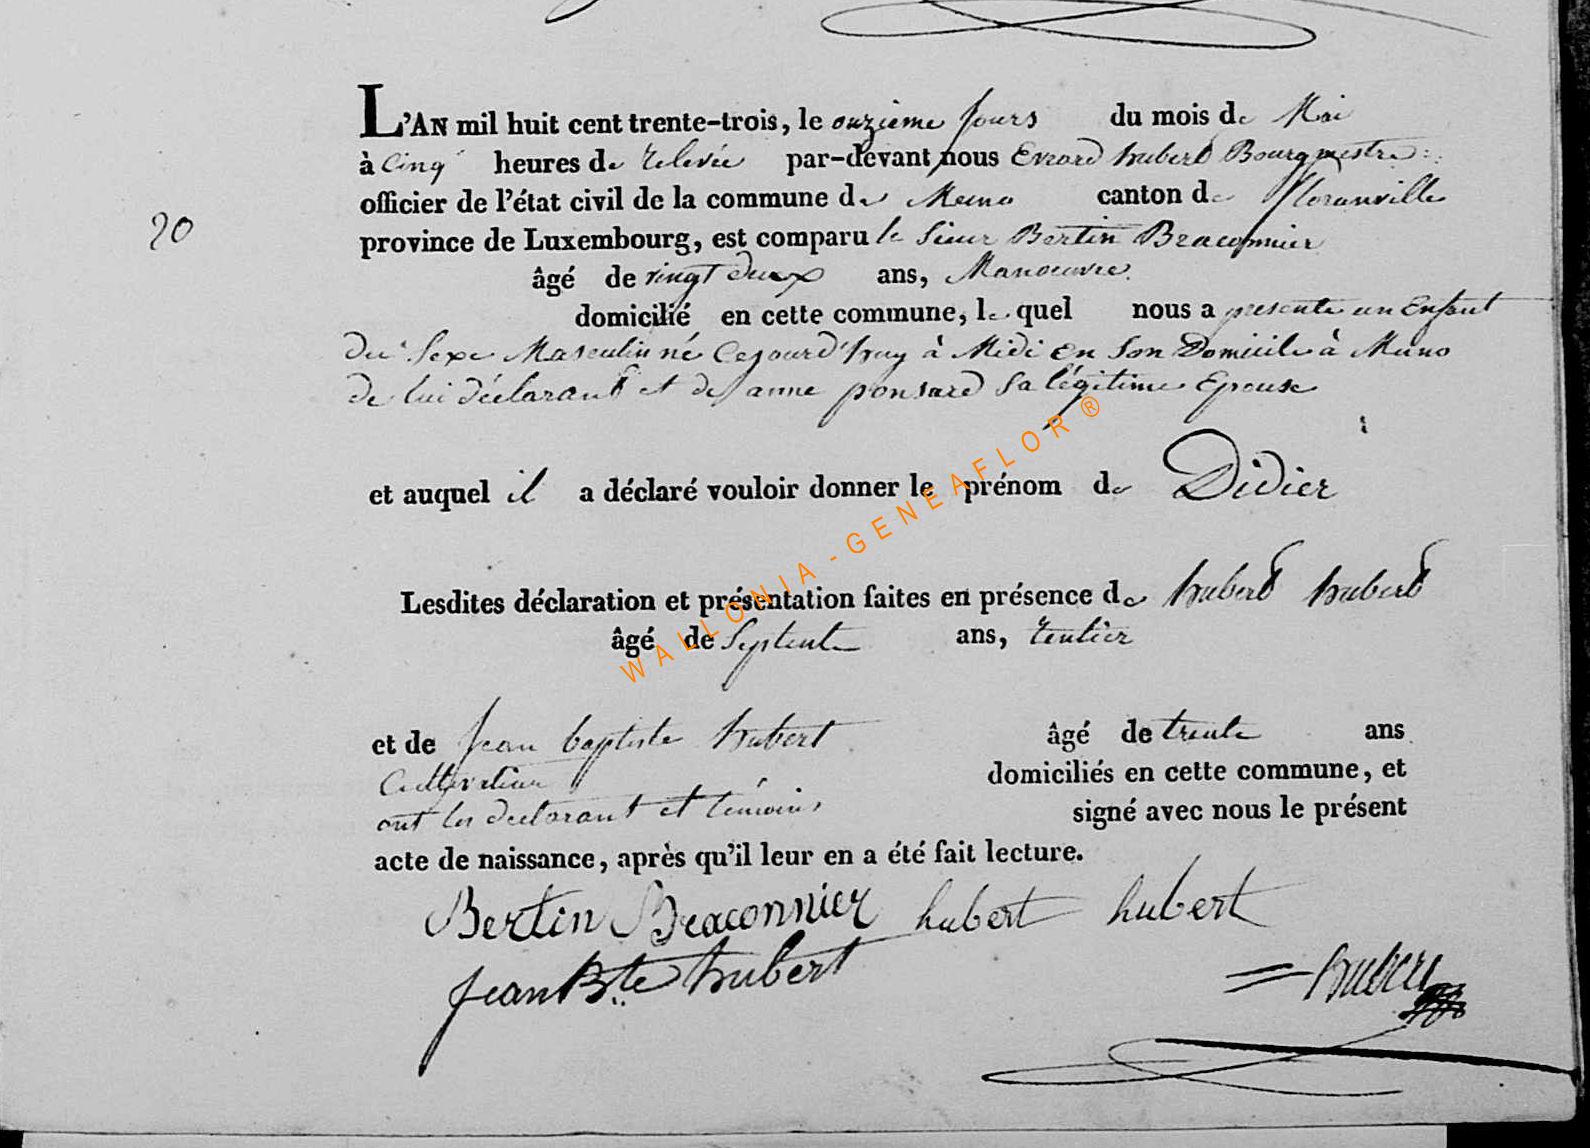 L'AN mil huit cent trente-trois, le onzième jours du mois de Mai
à Cinq heures de relevée par-devant nous Evrard hubert Bourgmestre
officier de l'état civil de la commune de Muno canton de Floranville
20
province de Luxembourg, est comparu le Sieur Bertin Braconnier
âgé de vingt deux ans, Manoeuvre
domicilié en cette commune, le quel nous a presenté un Enfant
du Sexe Masculin né Cejourd'huy à Midi en Son Domicile à Muno
de lui déclarant et de anne ponsard Sa légitime Epouse
et auquel il a déclaré vouloir donner le prénom de Didier
Lesdites déclaration et présentation faites en présence de hubert hubert
âgé de Septente ans, rentier
et de Jean baptiste hubert âgé de trente ans
Cultivateur domiciliés en cette commune, et
ont les declarant et témoins signé avec nous le présent
acte de naissance, après qu'il leur en a été fait lecture.
Bertin Braconnier hubert hubert
Jean Bte hubert hubert
WALLONIA - GENEAFLOR ®